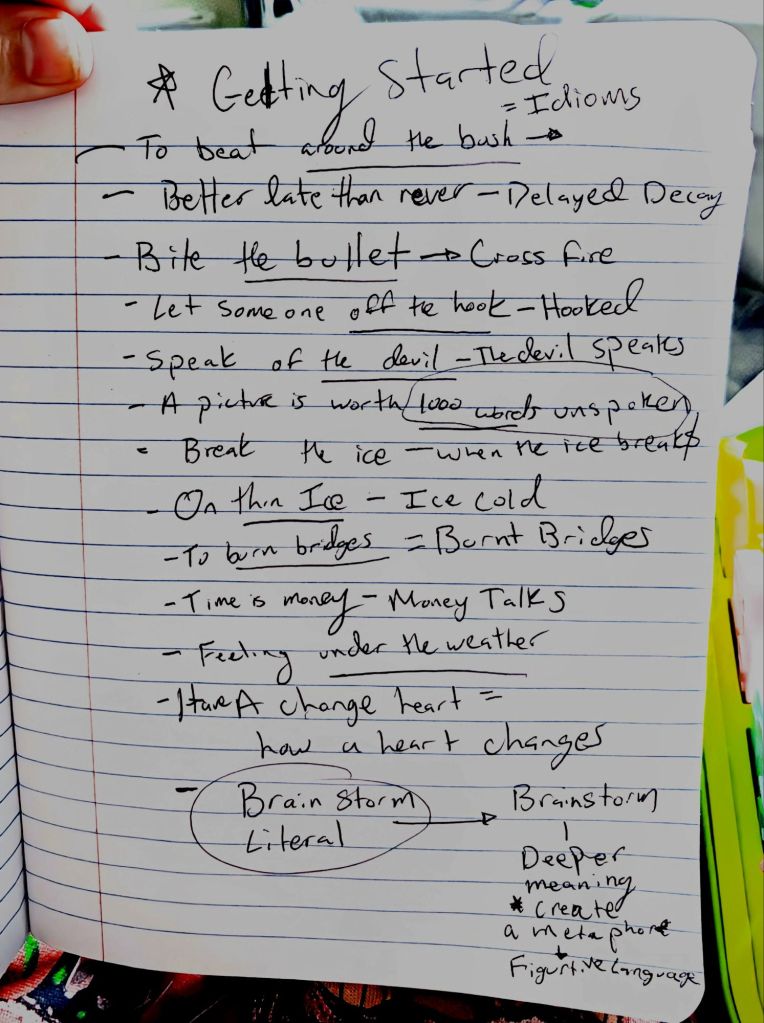 * Getting Started
= Idioms
- To beat around the bush →
- Better late than never - Delayed Decay
- Bite the bullet → Cross fire
- Let someone off the hook - Hooked
- Speak of the devil - The devil speaks
- A picture is worth 1000 words unspoken
- Break the ice - when the ice breaks
- On thin Ice - Ice cold
- To burn bridges = Burnt Bridges
- Time is money - Money Talks
- Feeling under the weather
- Have A change heart =
how a heart changes
- Brain storm → Brainstorm
Literal
|
Deeper
meaning
* create
a metaphore
↓
Figurtive Language